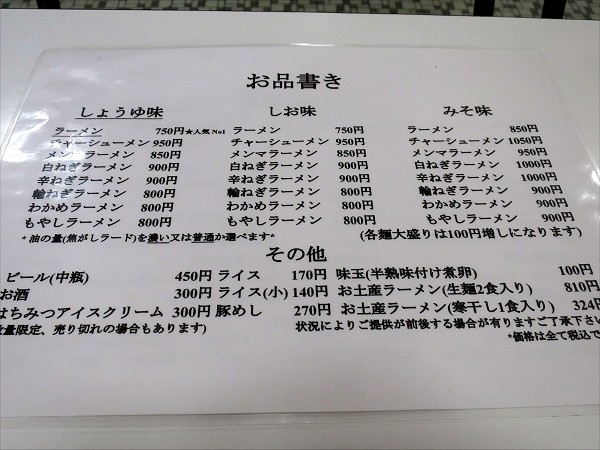 お品書き
しょうゆ味 しお味 みそ味
ラーメン 750円 ★人気No1 ラーメン 750円 ラーメン 850円
チャーシューメン 950円 チャーシューメン 950円 チャーシューメン 1050円
メンマラーメン 850円 メンマラーメン 850円 メンマラーメン 950円
白ねぎラーメン 900円 白ねぎラーメン 900円 白ねぎラーメン 1000円
辛ねぎラーメン 900円 辛ねぎラーメン 900円 辛ねぎラーメン 1000円
輪ねぎラーメン 800円 輪ねぎラーメン 800円 輪ねぎラーメン 900円
わかめラーメン 800円 わかめラーメン 800円 わかめラーメン 900円
もやしラーメン 800円 もやしラーメン 800円 もやしラーメン 900円
*油の量(焦がしラード)を濃い又は普通か選べます* (各麺大盛りは100円増しになります)
その他
ビール(中瓶) 450円 ライス 170円 味玉(半熟味付け煮卵) 100円
お酒 300円 ライス(小) 140円 お土産ラーメン(生麺2食入り) 810円
はちみつアイスクリーム 300円 豚めし 270円 お土産ラーメン(寒干し1食入り) 324円
数量限定、売り切れの場合もあります) 状況によりご提供が前後する場合が有りますご了承下さい
*価格は全て税込で